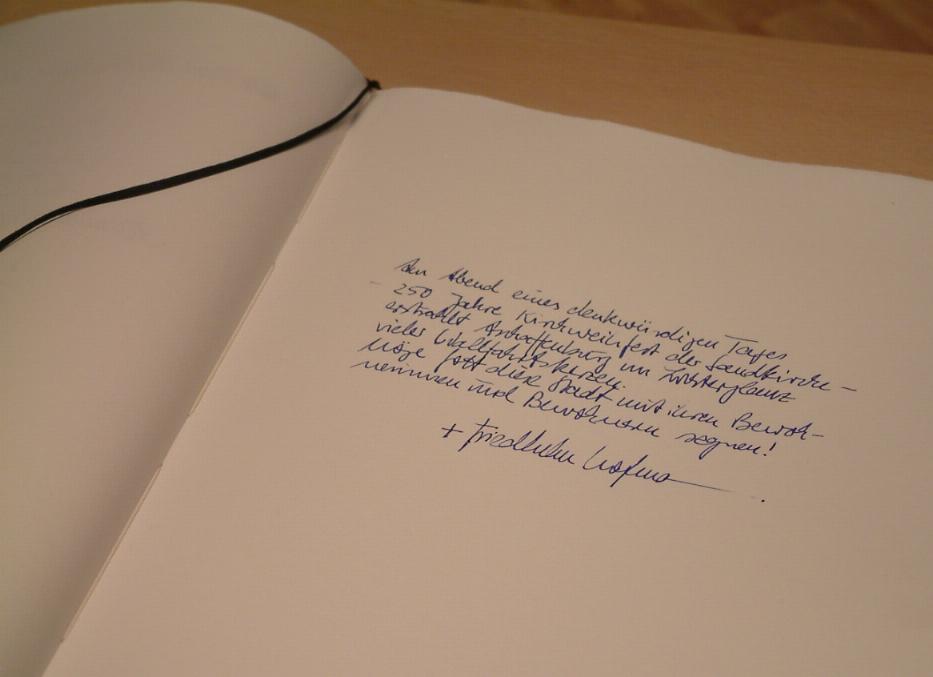 Am Abend eines denkwürdigen Tages
- 250 Jahre Kirchweihfest der Sandkirche -
erstrahlt Aschaffenburg im Lichterglanz
vieler Wallfahrtskerzen.
Möge Gott diese Stadt mit ihren Bewoh-
nerinnen und Bewohnern segnen!
+ Friedhelm Hofmann